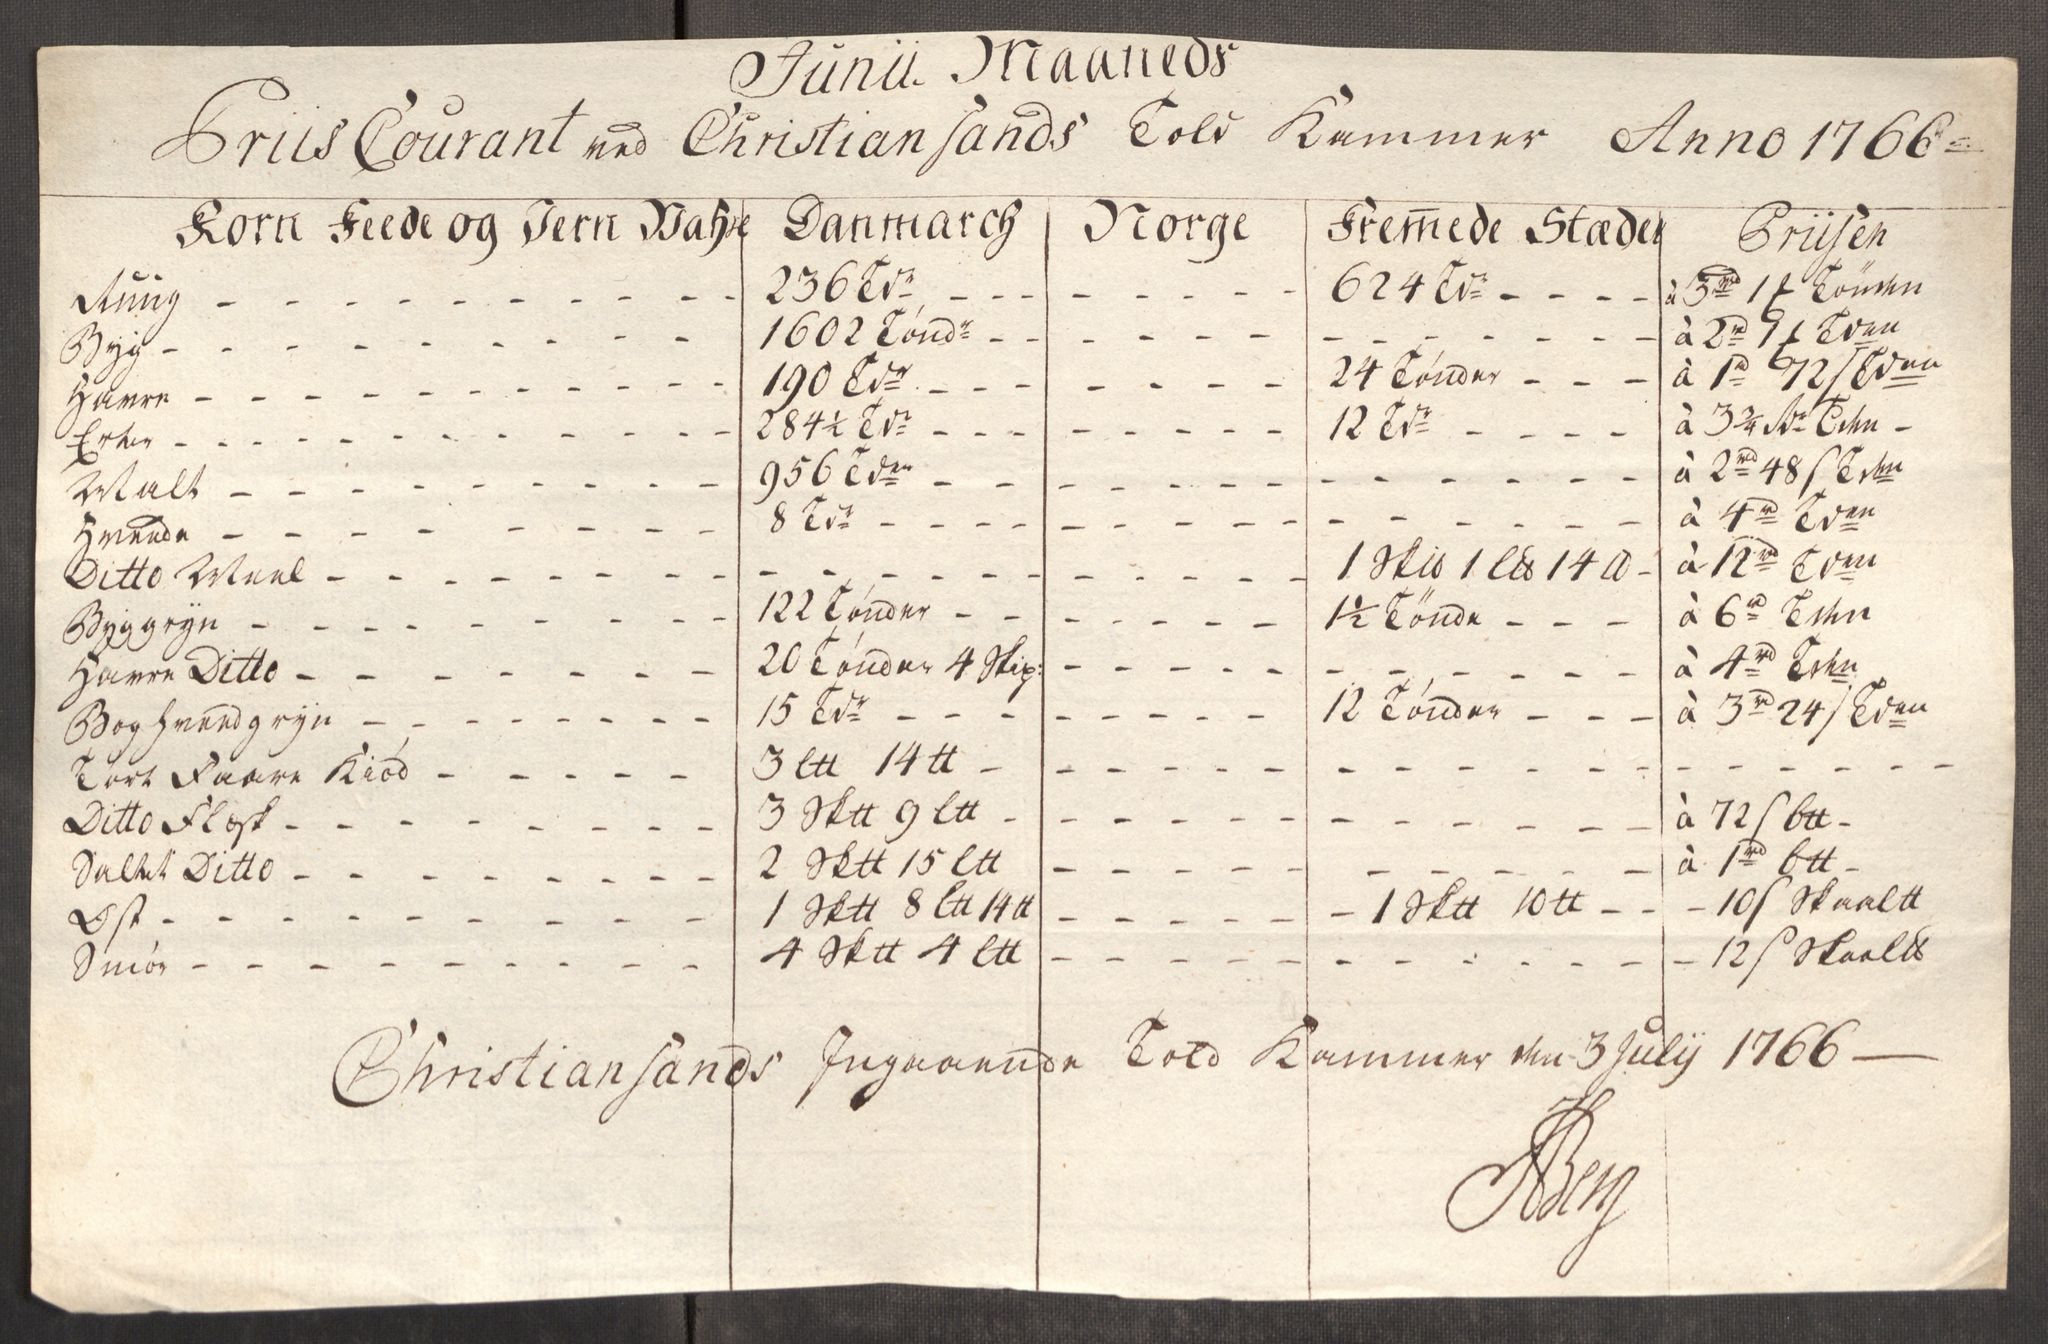 Junii Maaneds
Priis Courant ved Christiansands Told Kammer Anno 1766
Korn Feede og Jern Wahre Danmarch Norge Fremede Stæder Priisen
Ruug 236 Tdr 624 Tdr à 3 rd Tönden
Byg 1602 Tönd à 2 rd Tden
Havre 190 Tdr 24 Tönder à 1 rd 72 s Tden
Erter 284½ Tdr 12 Tdr à 3¾ Rdr Tden
Malt 956 Tder à 2 rd 48 s Tden
Hveede 8 Tdr à 4 rd Tden
Ditto Meel 1 Sk℔ 1 L℔ 14 ℔ à 12 rd Tden
Byggryn 122 Tönder 1½ Tönde à 6 rd Tden
Havre Ditto 20 Tönder 4 Skip: à 4 rd Tden
Boghveedgryn 15 Tdr 12 Tönder à 3 rd 24 s Tden
Tört Faare Kiöd 3 L℔ 14 ℔
Ditto Flæsk 3 Sk℔ 9 L℔ à 72 s b℔
Saltet Ditto 2 Sk℔ 15 L℔ à 1 rd b℔
Ost 1 Sk℔ 8 L℔ 14 ℔ 1 Sk℔ 10 ℔ 10 s Skaal℔
Smör 4 Sk℔ 4 L℔ 12 s Skaal℔
Christiansands Ingaaende Told Kammer den 3 Julij 1766
Berg